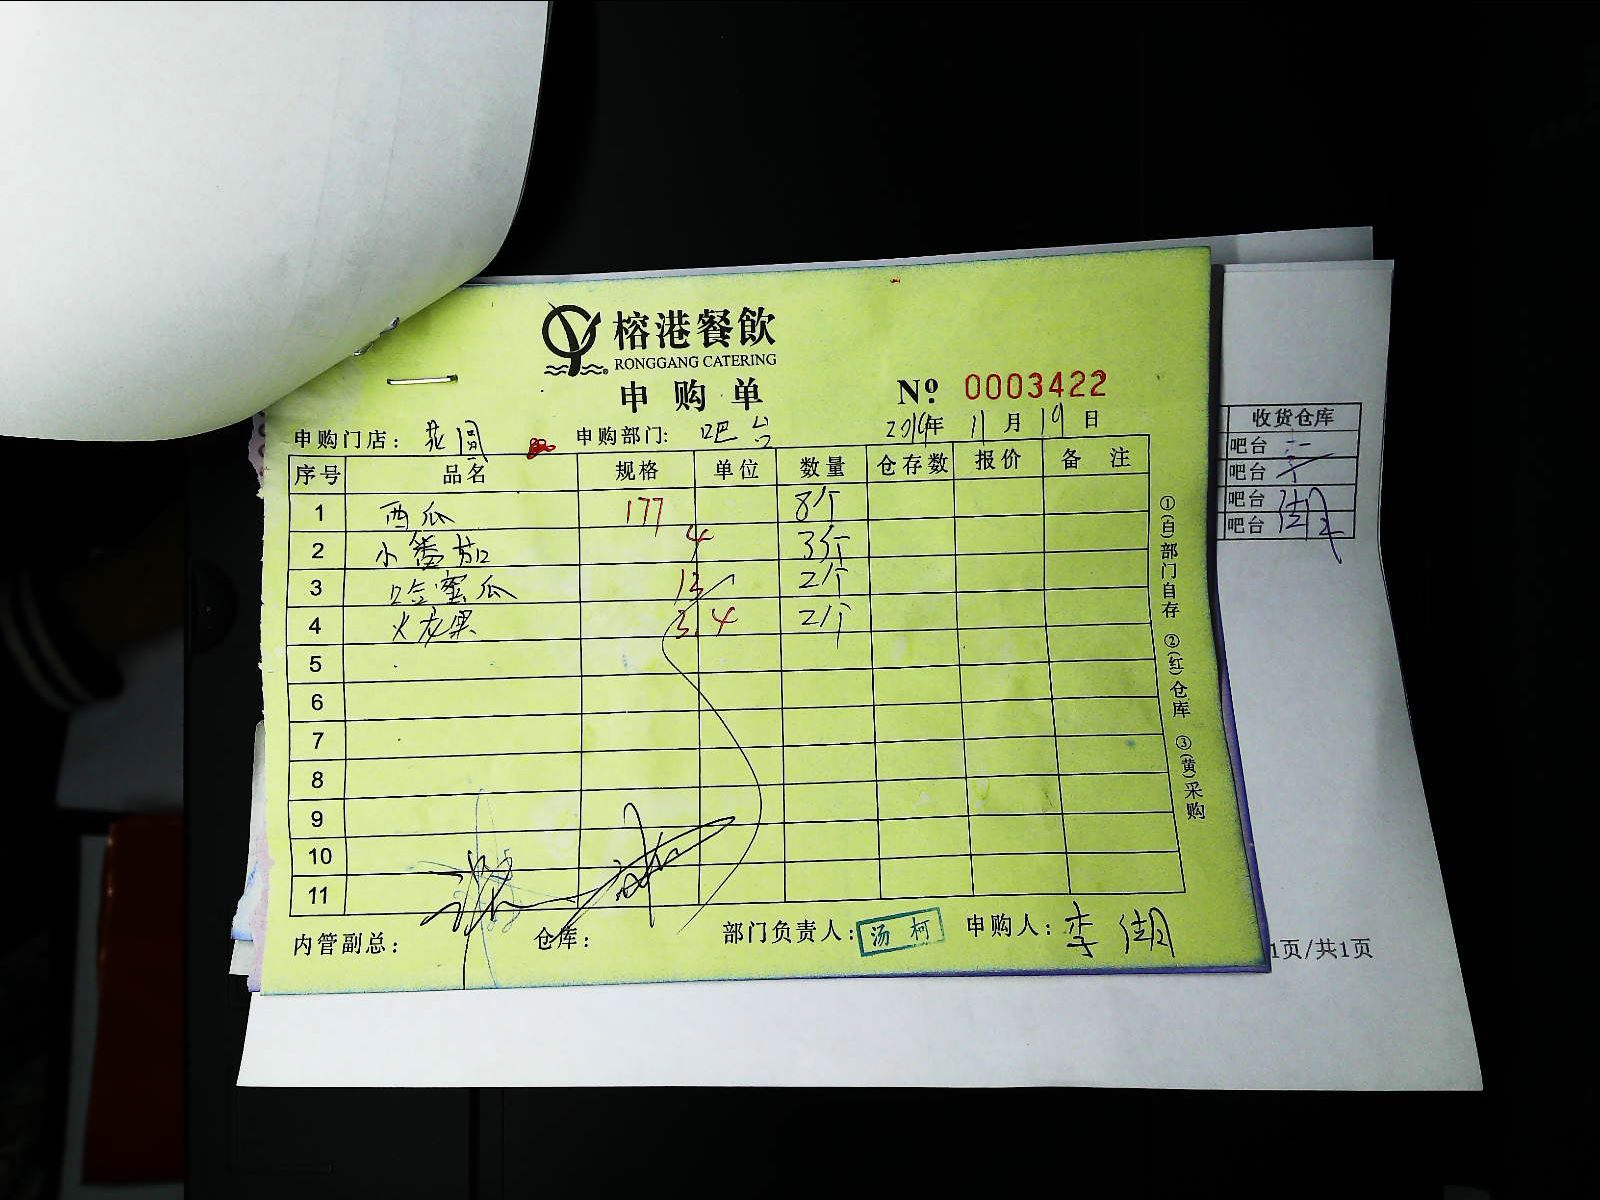 榕港餐飲
RONGGANG CATERING
申购单
№ 0003422
申购门店： 申购部门: 吧台 年 11月19日
序号 品名 规格 单位 数量 仓存数 报价 备 注
1 西瓜 177 8个
2 小番茄 4 3个
3 哈蜜瓜 13 2个
4 火龙果 3.4 2个
5
6
7
8
9
10
11
内管副总： 仓库： 部门负责人： 汤柯 申购人： 李
①(白)部门自存 ②(红)仓库 ③(黄)采购
收货仓库
吧台
吧台
吧台
吧台
1页/共1页